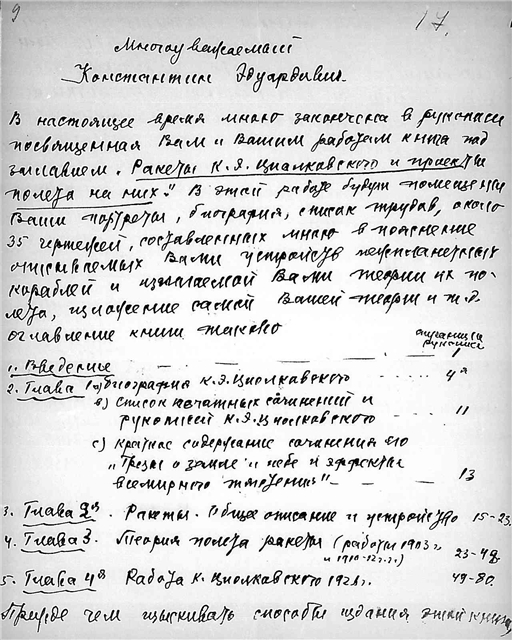 9
17.
Многоуважаемый
Константин Эдуардович.
В настоящее время мною закончена в рукописи
посвященная Вам и Вашим работам книга под
заглавием „Ракеты К.Э. Циолковского и проекты
полета на них". В этой работе будут помещены
Ваши портреты, биография, список трудов, около
35 чертежей, составленных мною в пояснение
описываемых Вами устройств межпланетных
кораблей и излагаемой Вами теории их по-
лета, изложение самой Вашей теории и т.д.
оглавление книги таково
страницы
рукописи
1. Введение 1
2. Глава 1 а) биография К.Э. Циолковского 4
в) список печатных сочинений и
рукописей К.Э. Циолковского 11
с) краткое содержание сочинения его
„Грезы о земле и небе и эффекты
всемирного тяготения" 13
3. Глава 2я. Ракеты. Общее описание и устройство 15-23.
4. Глава 3. Теория полета ракеты (работы 1903 г
и 1910-12 г.г.) 23-49.
5. Глава 4я Работа К. Циолковского 49-80.
Прежде чем изыскивать способы издания этой книги,